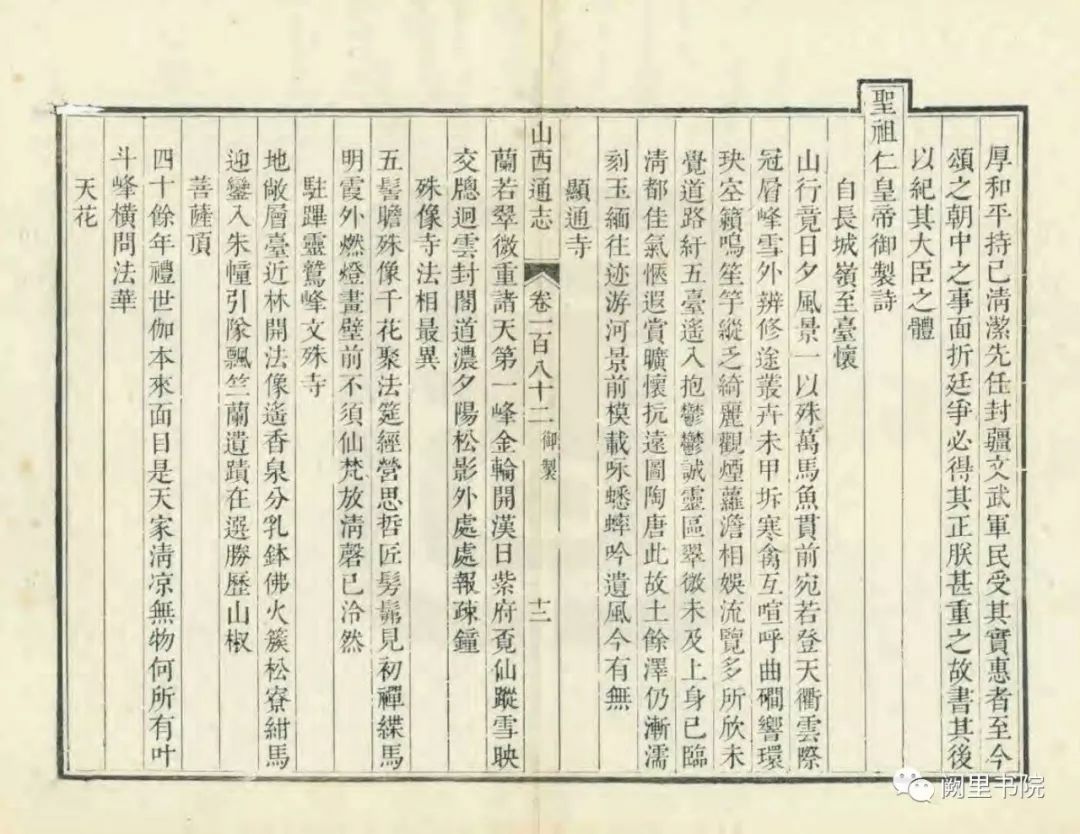 厚和平持已清潔先任封疆文武軍民受其實惠者至今
頌之朝中之事面折廷爭必得其正朕甚重之故書其後
以紀其大臣之體
聖祖仁皇帝御製詩
自長城嶺至臺懷
山行竟日夕風景一以殊萬馬魚貫前宛若登天衢雲際
冠層峰雪外辨修途叢卉未甲坼寒禽互喧呼曲磵響環
玦空籟鳴笙竽縱乏綺麗觀煙蘿澹相娛流覽多所欣未
覺道路紆五臺遙入抱鬱鬱誠靈區翠微未及上身已臨
淸都佳氣愜遐賞曠懷抗遠圖陶唐此故土餘澤仍漸濡
刻玉緬往迹游河景前模載咏蟋蟀吟遺風今有無
顯通寺
山西通志
卷一百八十二 御製
十二
蘭若翠微重諸天第一峰金輪開漢日紫府覓仙蹤雪映
交牕迴雲封閣道濃夕陽松影外處處報疎鐘
殊像寺法相最異
五髻瞻殊像千花聚法筵經營思哲匠髣髴見初禪緤馬
明霞外燃燈畫壁前不須仙梵放淸磬已泠然
駐蹕靈鷲峰文殊寺
地敞層臺近林開法像遙香泉分乳鉢佛火簇松寮紺馬
迎鑾入朱幢引隊飄竺蘭遺蹟在選勝歷山椒
菩薩頂
四十餘年禮世伽本來面目是天家淸凉無物何所有叶
斗峰橫問法華
天花
阙里书院